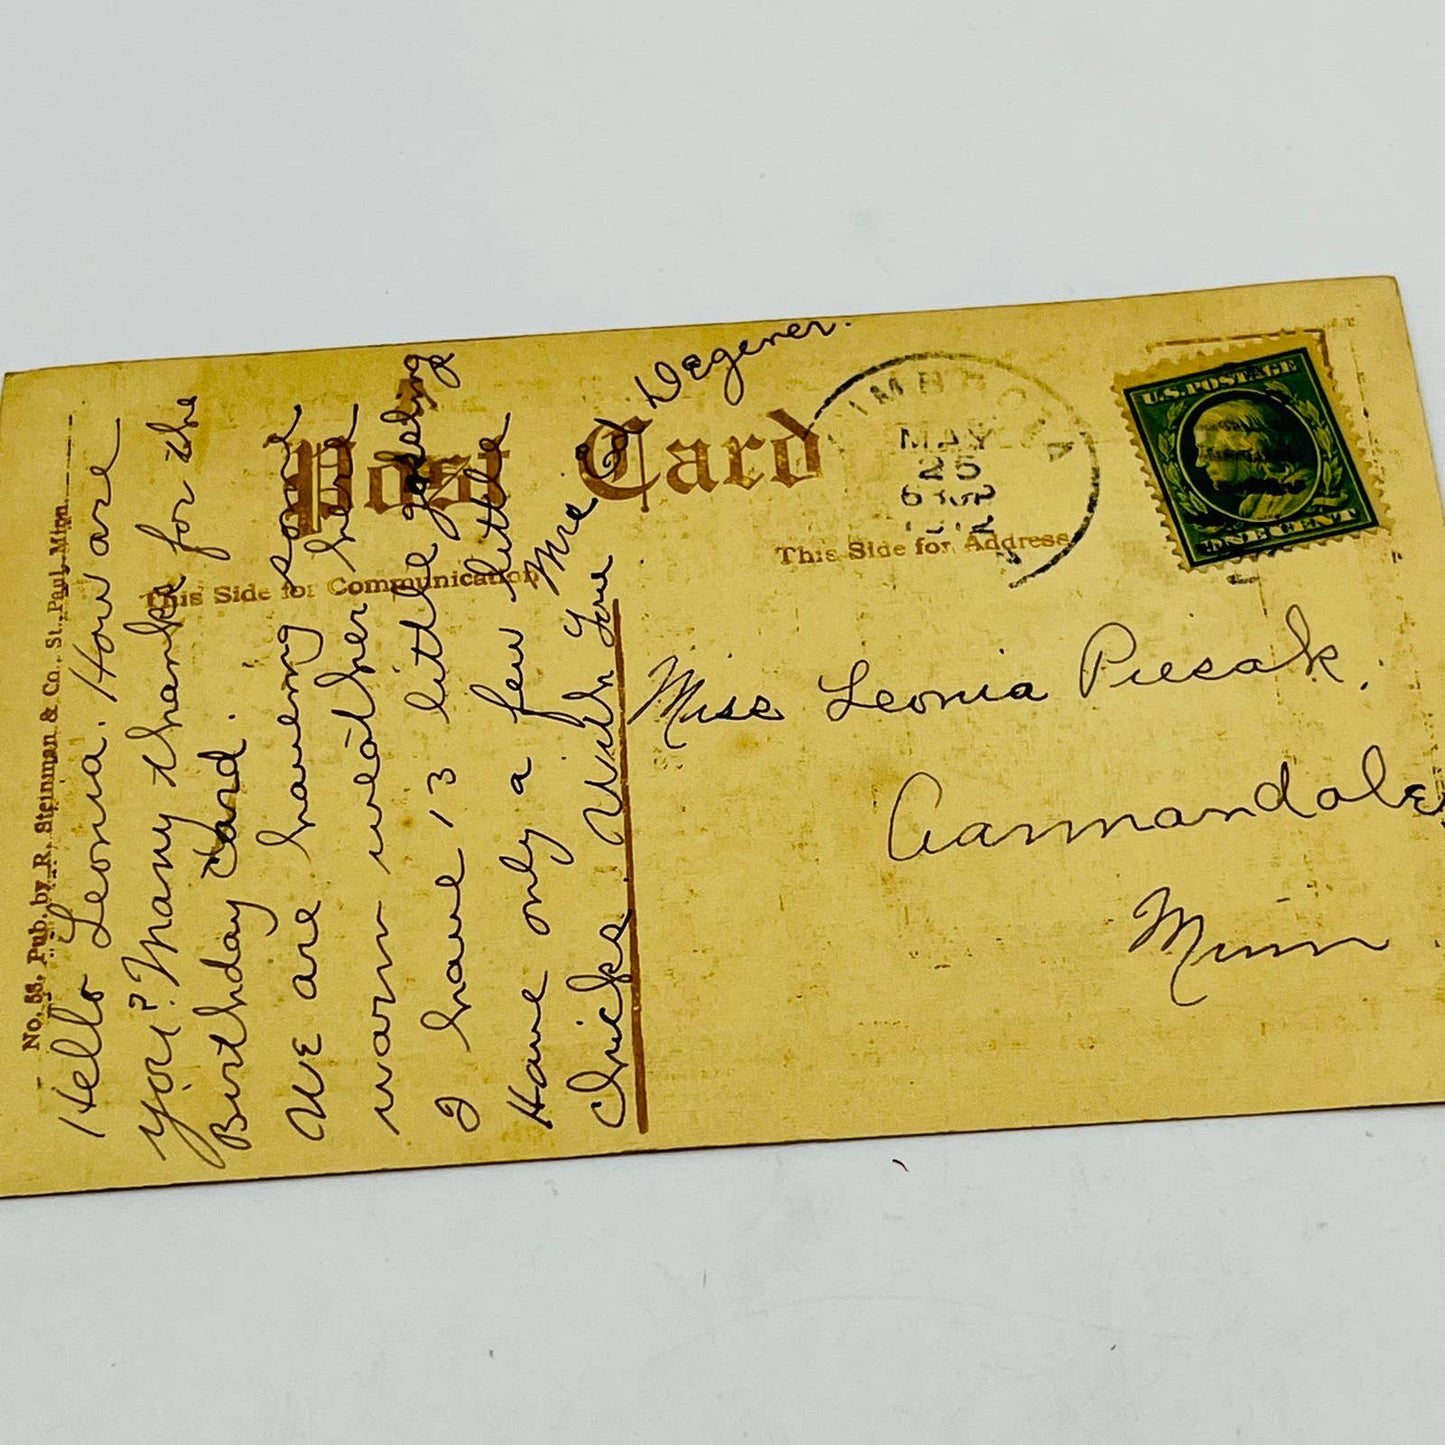 No. 58. Pub. by R. Steinman & Co., St. Paul, Minn.
Hello Leonia. How are
you? Many thanks for the
Birthday Card.
We are having some
warm weather here
I have 13 little gosling
Have only a few little
Chicks. With Love
Wegener.
Post Card
This Side for Communication
This Side for Address
MAY
25
1912
U.S. POSTAGE
ONE CENT
Miss Leonia Piesak.
Aannandale
Minn